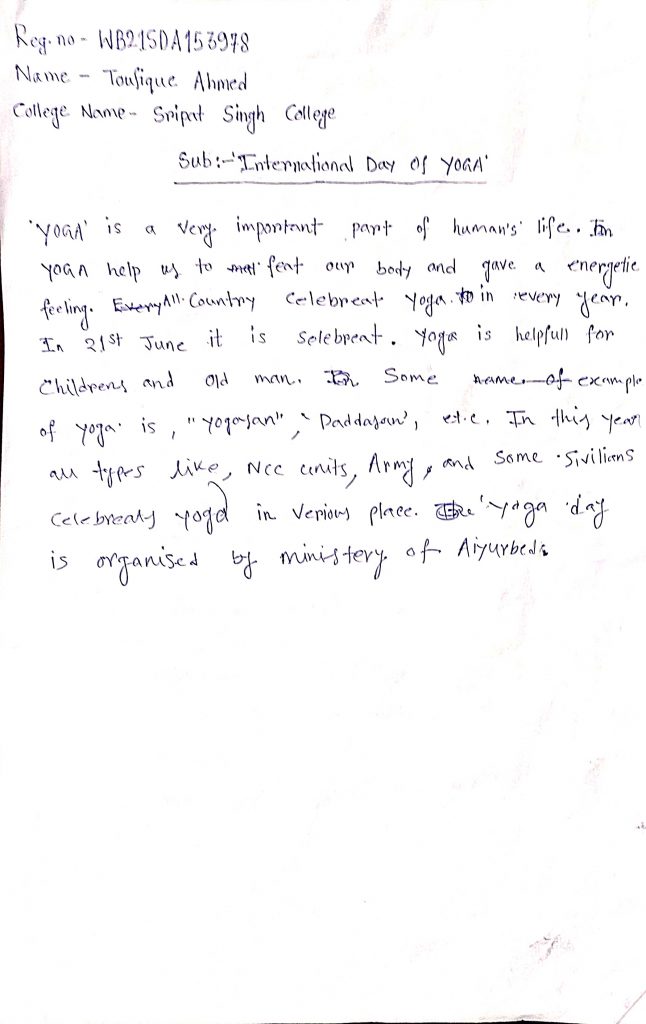 Reg. no - WB21SDA153978
Name - Toufique Ahmed
College Name - Sripat Singh College
Sub:- 'International Day Of YOGA'
'YOGA' is a very important part of human's life.. In
YOGA help us to feat our body and gave a energetic
feeling. Every All Country celebreat yoga to in every year.
In 21st June it is selebreat. Yoga is helpfull for
Childrens and old man. In Some name of example
of yoga is, "yogasan", 'Daddasan', etc. In this year
all types like, NCC units, Army, and some sivilians
celebreaty yoga in verious place. The 'yoga day
is organised by ministery of Aiyurbeda